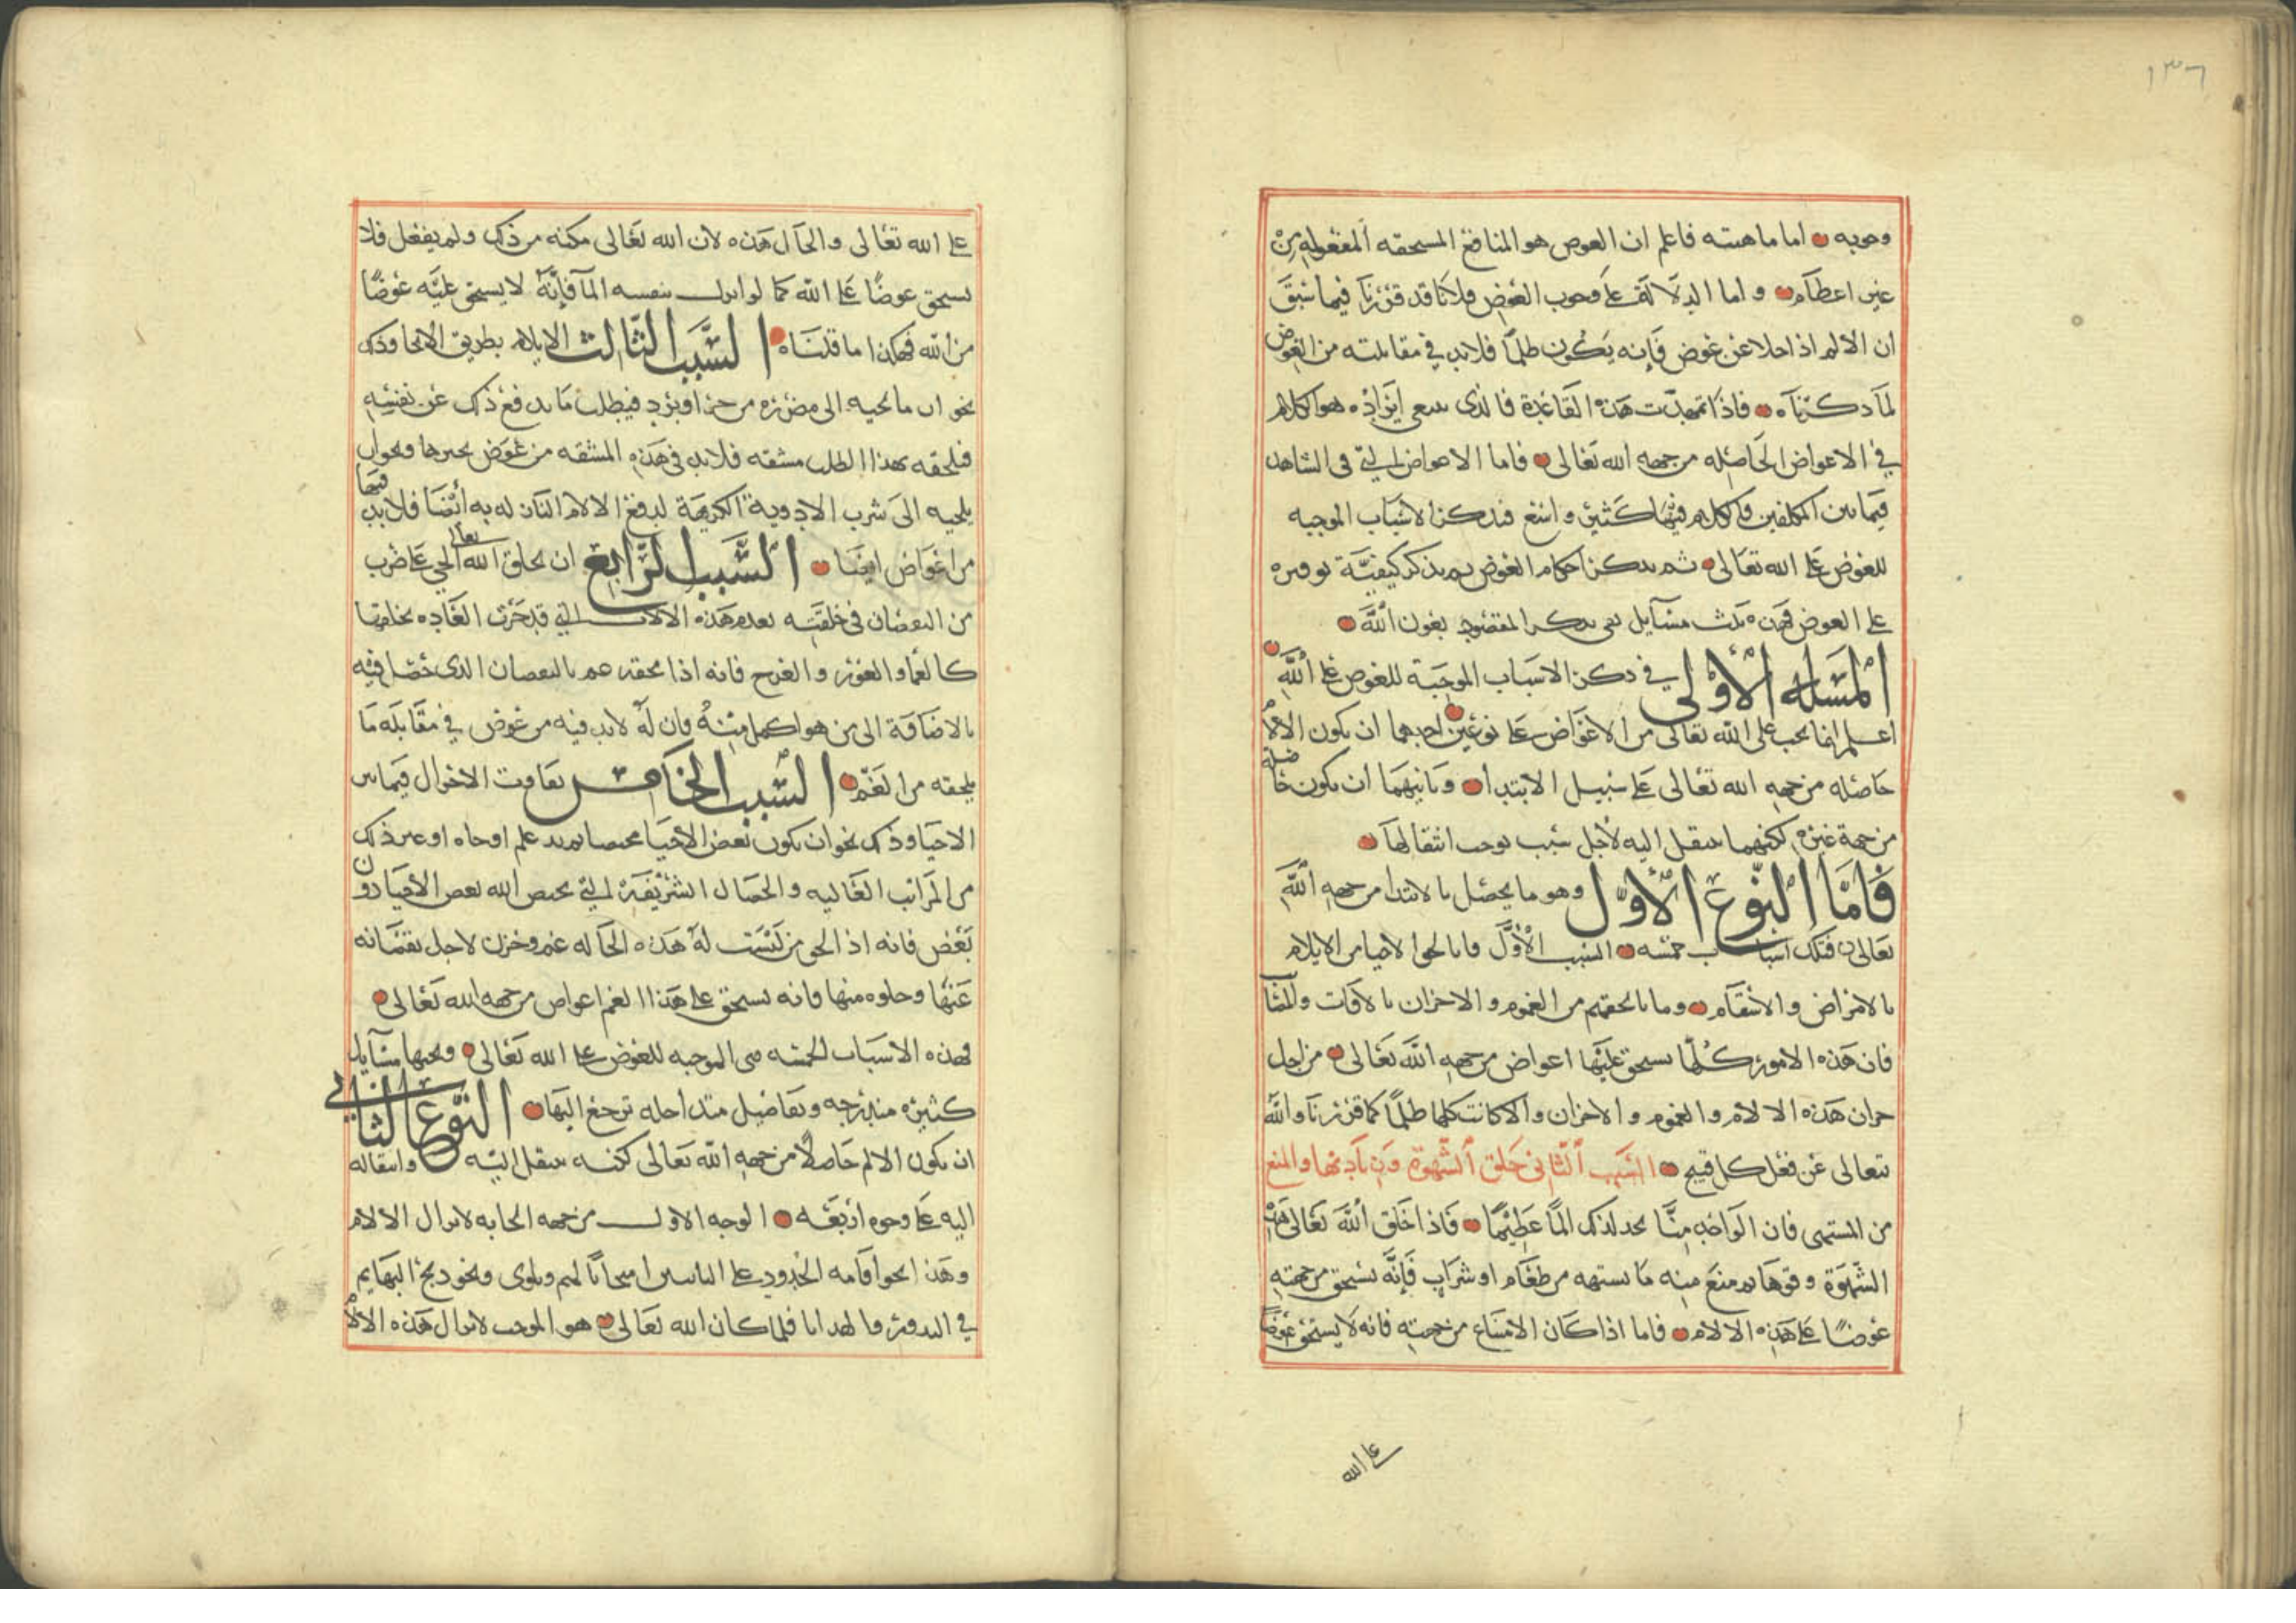 ١٣٦
وجوبه اما ماهيته فاعلم ان العوض هو المنافع المستحقه المفعوله من
غير اعظام واما الدلالة على وجوب العوض فلانا قد قررنا فيما سبق
ان الالم اذا خلا عن عوض فإنه يكون ظلماً فلابد في مقابلته من العوض
لما ذكرناه فاذا تمهدت هذه القاعدة فالذى ينبغي ايراده هو الكلام
في الاعواض الحاصله من جهه الله تعالى فاما الاعواض التي في الشاهد
فيما بين المكلفين فالكلام فيها كثير واسع فنذكر الاسباب الموجبه
للعوض على الله تعالى ثم نذكر احكام العوض ثم نذكر كيفيَّة توفيره
على العوض فهذه ثلث مسآيل نفى بذكر المقصود بعون الله
المسئله الاولى في ذكر الاسباب الموجبة للعوض على الله
اعلم انما يجب على الله تعالى من الاعواض على نوعين احدهما ان يكون الالام
حاصله من جهه الله تعالى على سبيل الابتدا وثانيهما ان يكون حاصله
من جهة غيره لكنهما ينتقل اليه لأجل سبب يوجب انتقالها
فامّا النّوع الأوّل وهو ما يحصل بالابتدا من جهه الله
تعالى فتلك اسباب خمسه السبب الأوَّل فما يالحق الاحيا من الايلام
بالامراض والاسقام وما يالحقهم من الغموم والاحزان بالافات والمثا
فان هذه الامور كلها يستحق عليها اعواض من جهه الله تعالى من اجل
جبران هذه الالام والغموم والاحزان والا كانت كلها ظلماً كما قررنا والله
تتعالى عن فعل كل قبيح السبب الثاني خلق الشهوة وتاديتها والمنع
من المشتهى فان الواحد منَّا يجد لذلك الماً عظيماً فاذا خلق الله تعالى هذه
الشهوة وقوها ثم منع منه ما يشتهيه من طعام او شراب فإنَّه يستحق من جهته
عوضاً على هذه الالام فاما اذا كان الامتناع من جهته فانه لا يستحق عوضاً
على الله
على الله تعالى والحال هذه لان الله تعالى مكنه من ذلك ولم يفعل فلا
يستحق عوضاً على الله كما لو انزل بنفسه الماً فإنَّهُ لا يستحق عليه عوضاً
من الله فهكذا ما قلناه السَّبب الثّالث الايلام بطريق الالجا وذلك
نحو ان مالجيه الى مضرة من حر او برد فيطلب ما يدفع ذلك عن نفسه
فيلحقه بهذا الطلب مشقه فلابد في هذه المشقه من عوض يجبرها ونحو ان
يلجيه الى شرب الادوية الكريهة لدفع الالام النازله به أيضاً فلابد فيها
من اعواض ايضا السَّبب الرَّابع ان يخلق الله تعالى الحي على ضرب
من النقصان في خلقته بعدم هذه الالات التي قد جرت العاده بخلقها
كالعما والعور والعرج فانه اذا لحقه غم بالنقصان الذى حصل فيه
بالاضافة الى من هو اكمل منهُ فان له لابد فيه من عوض في مقابله ما
يلحقه من الغمّ السَّبب الخامس تفاوت الاحوال فيما بين
الاحيا وذلك نحو ان يكون بعض الأحيا مختصا بمزيد علم او جاه او غير ذلك
من المراتب العاليه والخصال الشريفة التي يختص الله بعض الأحيا دون
بعض فانه اذ الحى من ليست له هذه الحاله غم وحزن لاجل نقصانه
عنها وخلوه منها فانه يستحق على هذا الغم اعواض من جهه الله تعالى
فهذه الاسباب الخمسه هى الموجبه للعوض على الله تعالى وتحتها مسآيل
كثيره مندرجه وتفاصيل متداخله ترجع اليها النّوع الثاني
ان يكون الالم حاصلاً من جهه الله تعالى لكنه ينتقل اليه وانتقاله
اليه على وجوه اربعه الوجه الاول من جهه ايجابه لانزال الالام
وهذا نحو اقامه الحدود على التائبين امتحاناً لهم وبلوى ونحو ذبح البهايم
في النذور والهدايا فلما كان الله تعالى هو الموجب لانزال هذه الالام